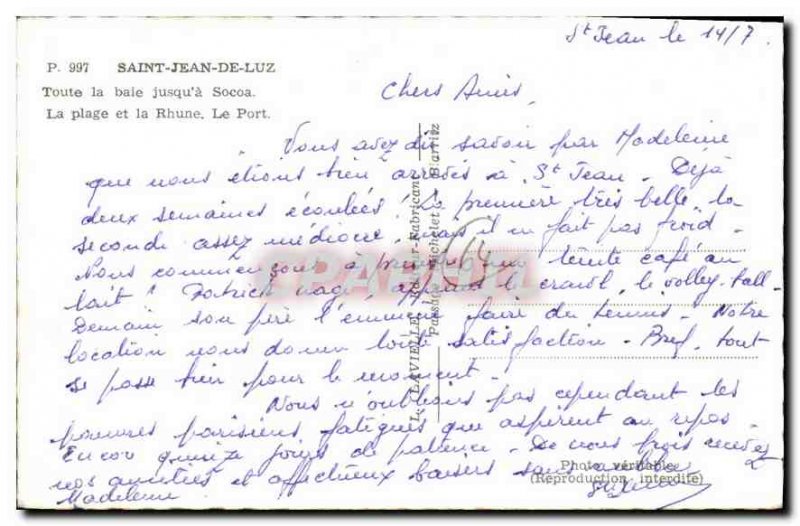 St Jean le 14/7
P. 997 SAINT-JEAN-DE-LUZ
Toute la baie jusqu'à Socoa.
La plage et la Rhune. Le Port.
Chers Amis,
Vous avez dû savoir par Madeleine
que nous étions bien arrivés à St Jean. Déjà
deux semaines écoulées! La première très belle, la
seconde assez médiocre, mais il ne fait pas froid.
Nous commençons à prendre une teinte café au
lait! Patrick nage, apprend le crawl, le volley-ball
Demain son père l'emmène faire du tennis. Notre
location nous donne toute satisfaction. Bref, tout
se passe bien pour le moment.
Nous n'oublions pas cependant les
pauvres parisiens fatigués que aspirent au repos.
Encor quinze jours de patience. De nous trois recevez
nos amitiés et affectueux baisers sans
Madeleine
L. CLAVERIE, Éditeur-Fabricant
Passage Michelet - Biarritz
Photo véritable
(Reproduction interdite)